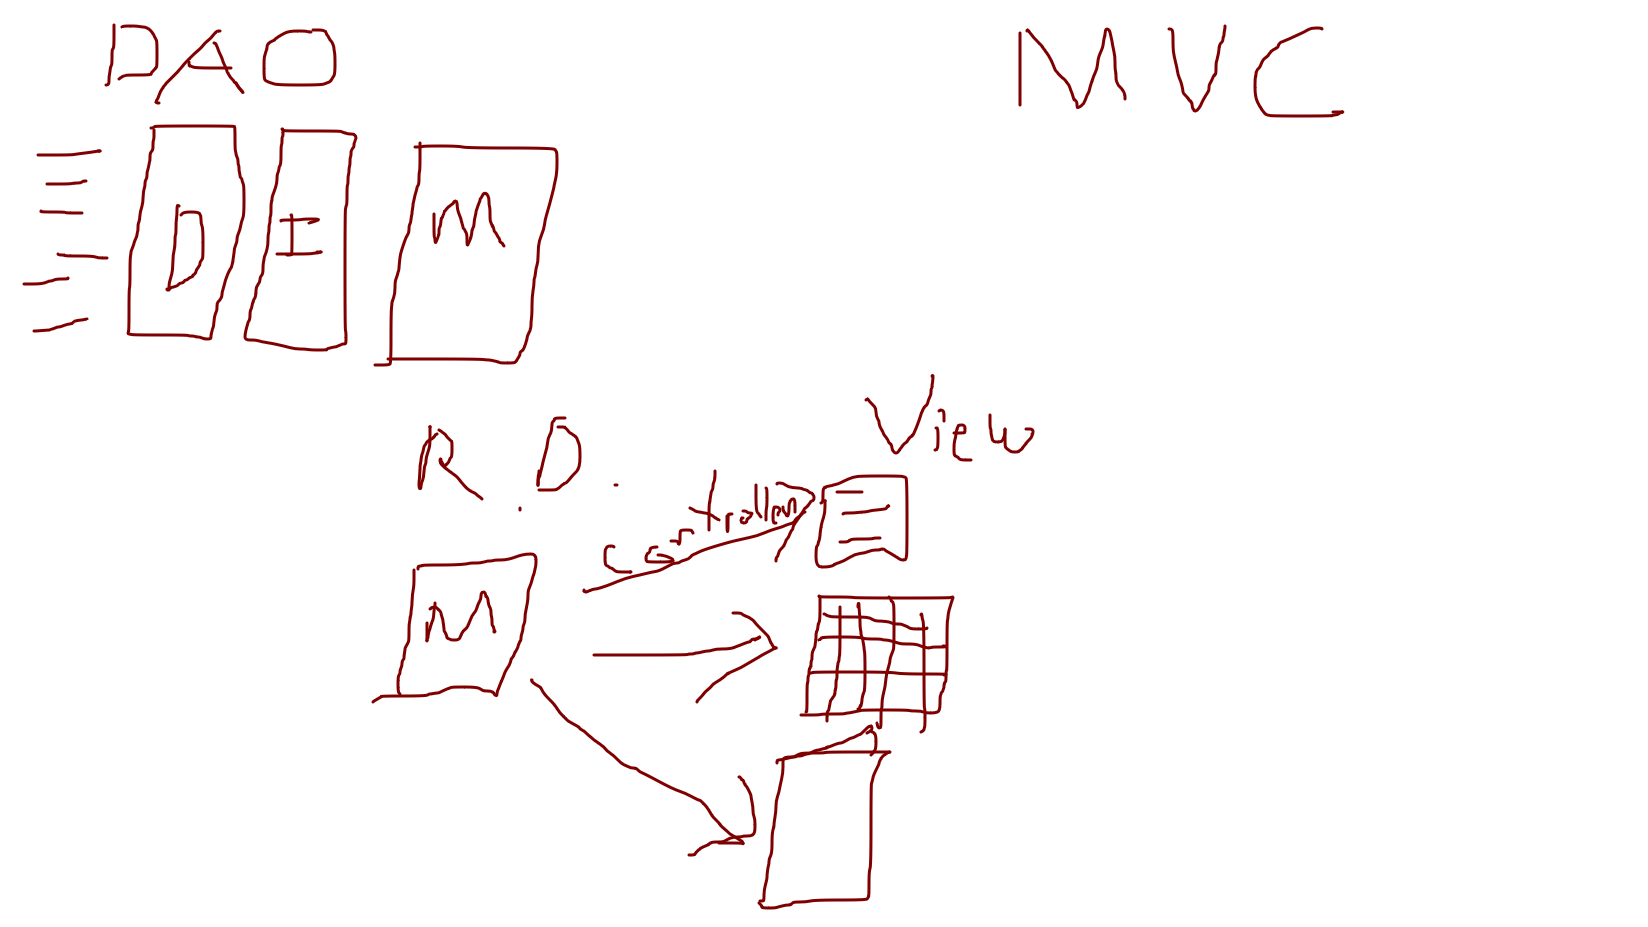 DAO
MVC
D I M
R.D.
View
controller
M